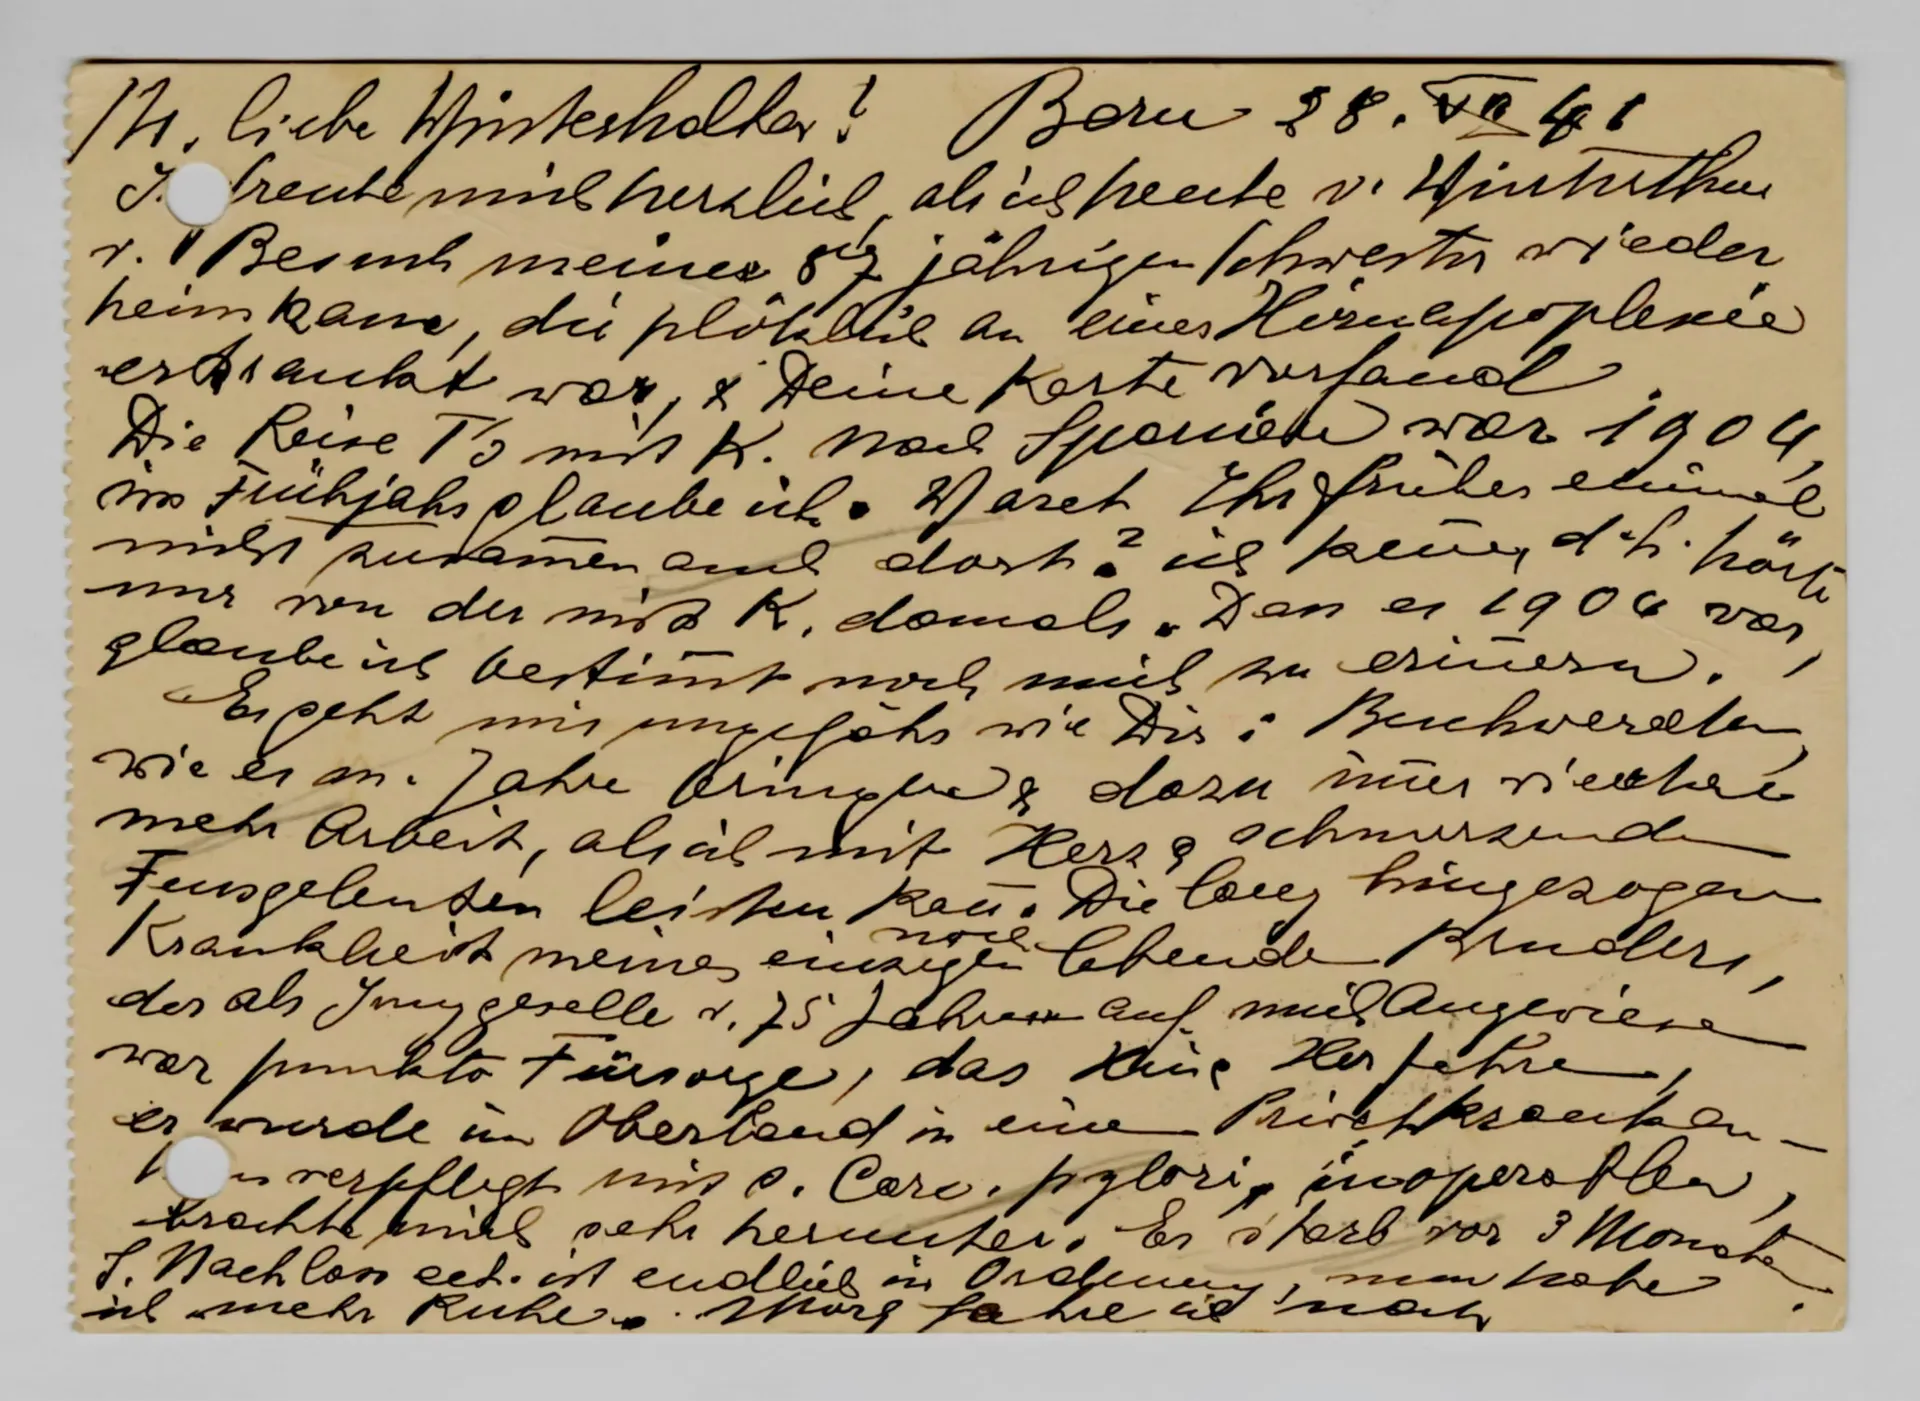 M. liebe Winterhalter! Bern 28. VII 41
I. freute mich herzlich, als ich heute v. Winterthur
v. Besuch meiner 87 jährigen Schwester wieder
heimkam, die plötzlich an einer Hirnapoplexie
erkrankt war, & Deine Karte vorfand.
Die Reise T's mit K. nach Spanien war 1904,
im Frühjahr glaube ich. Waret Ihr früher einmal
nicht zusam̅en auch dort? ich ken̅e, d. h. hörte
nur von der mit K. damals. Dass es 1904 war,
glaube ich bestim̅t noch mich zu erin̅ern.
Es geht mir ungefähr wie Dir: Beschwerden,
wie es m. Jahre bringen & dazu im̅er wieder
mehr Arbeit, als ich mit Herz & schmerzenden
Fussgelenken leisten kan̅. Die lang hingezogene
Krankheit meines einzigen noch lebenden Bruders,
der als Junggeselle v. 75 Jahren auf mich angewiesen
war punkto Fürsorge, das Hin & Her fahren,
er wurde im Oberland in einem Privatkranken-
verpflegt mit s. Carc. pylori, inoperablen,
brachte mich sehr herunter. Er starb vor 3 Monaten.
S. Nachlass ect. ist endlich in Ordnung, nun habe
ich mehr Ruhe. Morg fahre ich noch